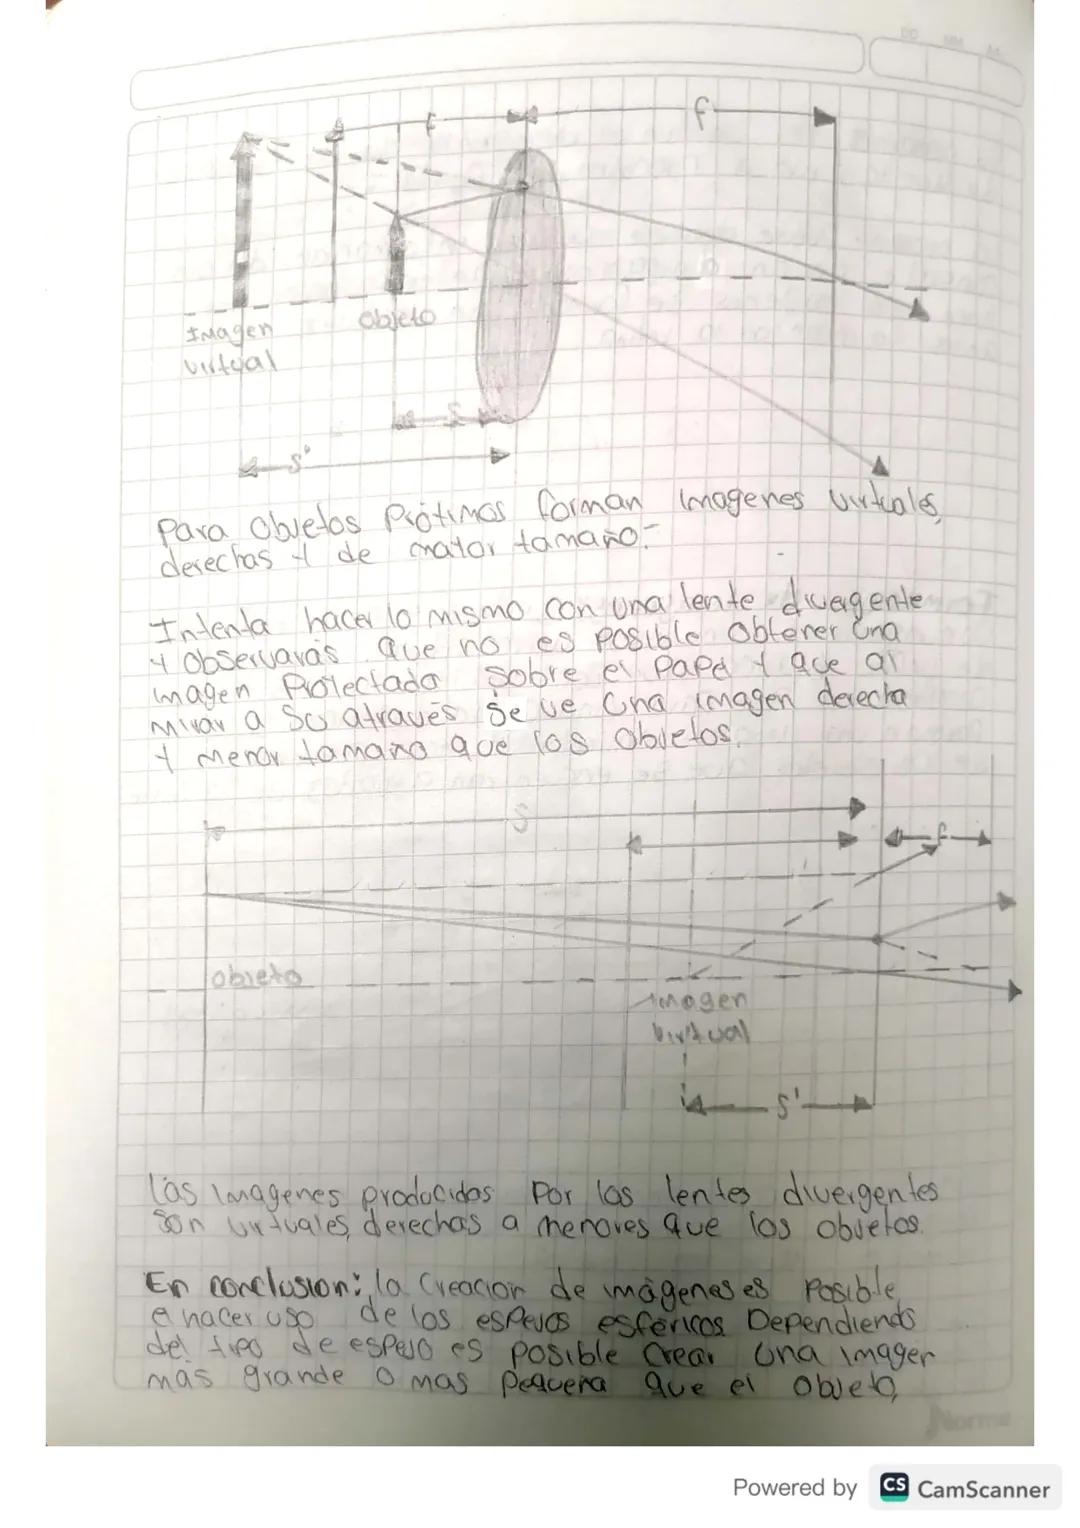 DD MM
f f
Imagen
virtual
Objeto
s
s'
Para Objetos Prótimos forman imagenes virtuales,
derechas y de mator tamaño.
Intenta hacer lo mismo con una lente divergente
y Observarás que no es posible Obtener una
imagen Protectada sobre el Papel y que al
mirar a su através se ve una imagen derecha
y menor tamaño que los Objetos.
S
f
Objeto
imagen
virtual
s'
Las imagenes producidas Por las lentes divergentes
son virtuales, derechas a menores que los objetos.
En conclusion: la Creacion de imágenes es Posible
a hacer uso de los espejos esféricos Dependiendo
del tipo de espejo es posible Crear una imagen
mas grande o mas Pequeña que el Objeto,
Norma
Powered by CS CamScanner